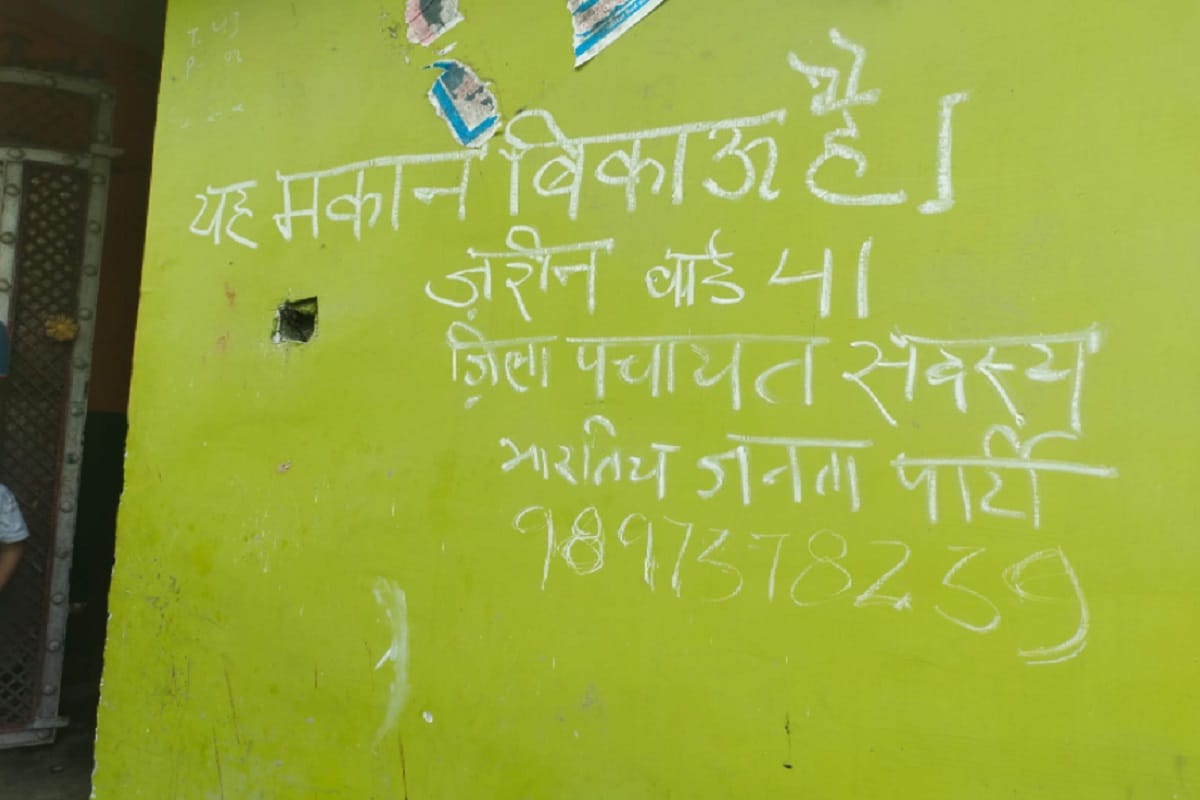 यह मकान बिकाऊ है।
ज़रीन वार्ड 41
ज़िला पंचायत सदस्य
भारतिय जनता पार्टी
9897378239